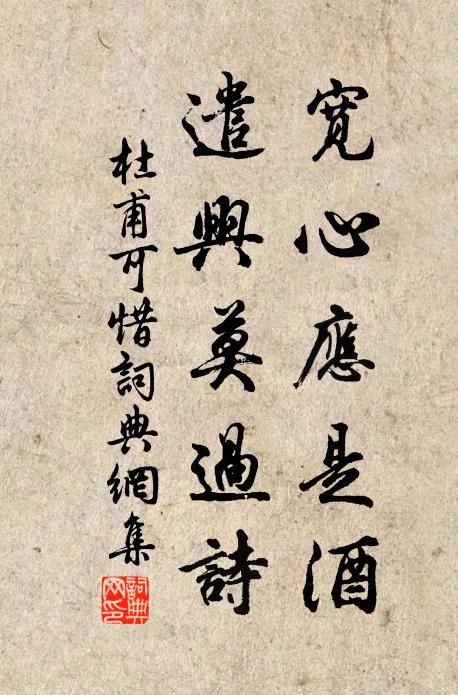 寬心應是酒
遣興莫過詩
杜甫可惜詞典網集
詞典網印